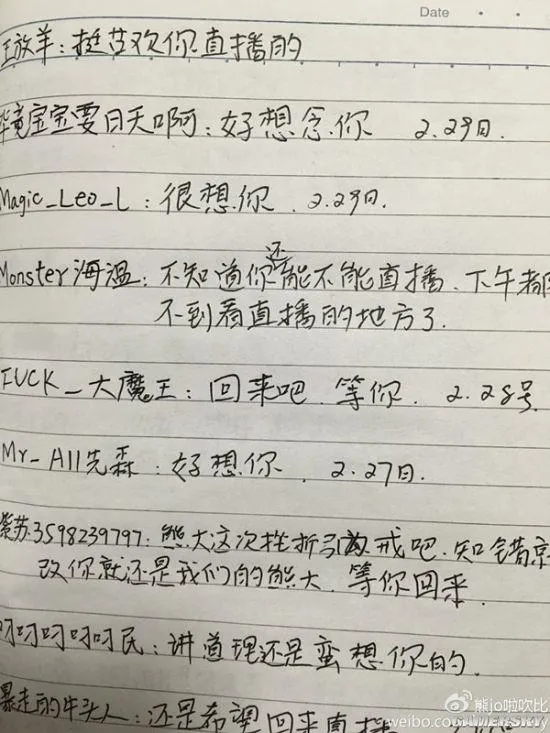 Date
王放羊：挺喜欢你直播的
毕竟宝宝要日天啊：好想念你 2.29日.
Magic_Leo_L：很想你. 2.29日.
Monster海温：不知道你还能不能直播.下午都
不到看直播的地方了.
FUCK_大魔王：回来吧.等你. 2.28号
Mr_All先森：好想你. 2.27日.
紫苏:3598239797：熊大这次挫折引以为戒吧.知错
改你就还是我们的熊大.等你回来.
叼叼叼叼叼民：讲道理还是蛮想你的.
暴走的牛头人：还是希望回来直播
熊jo啦吹比